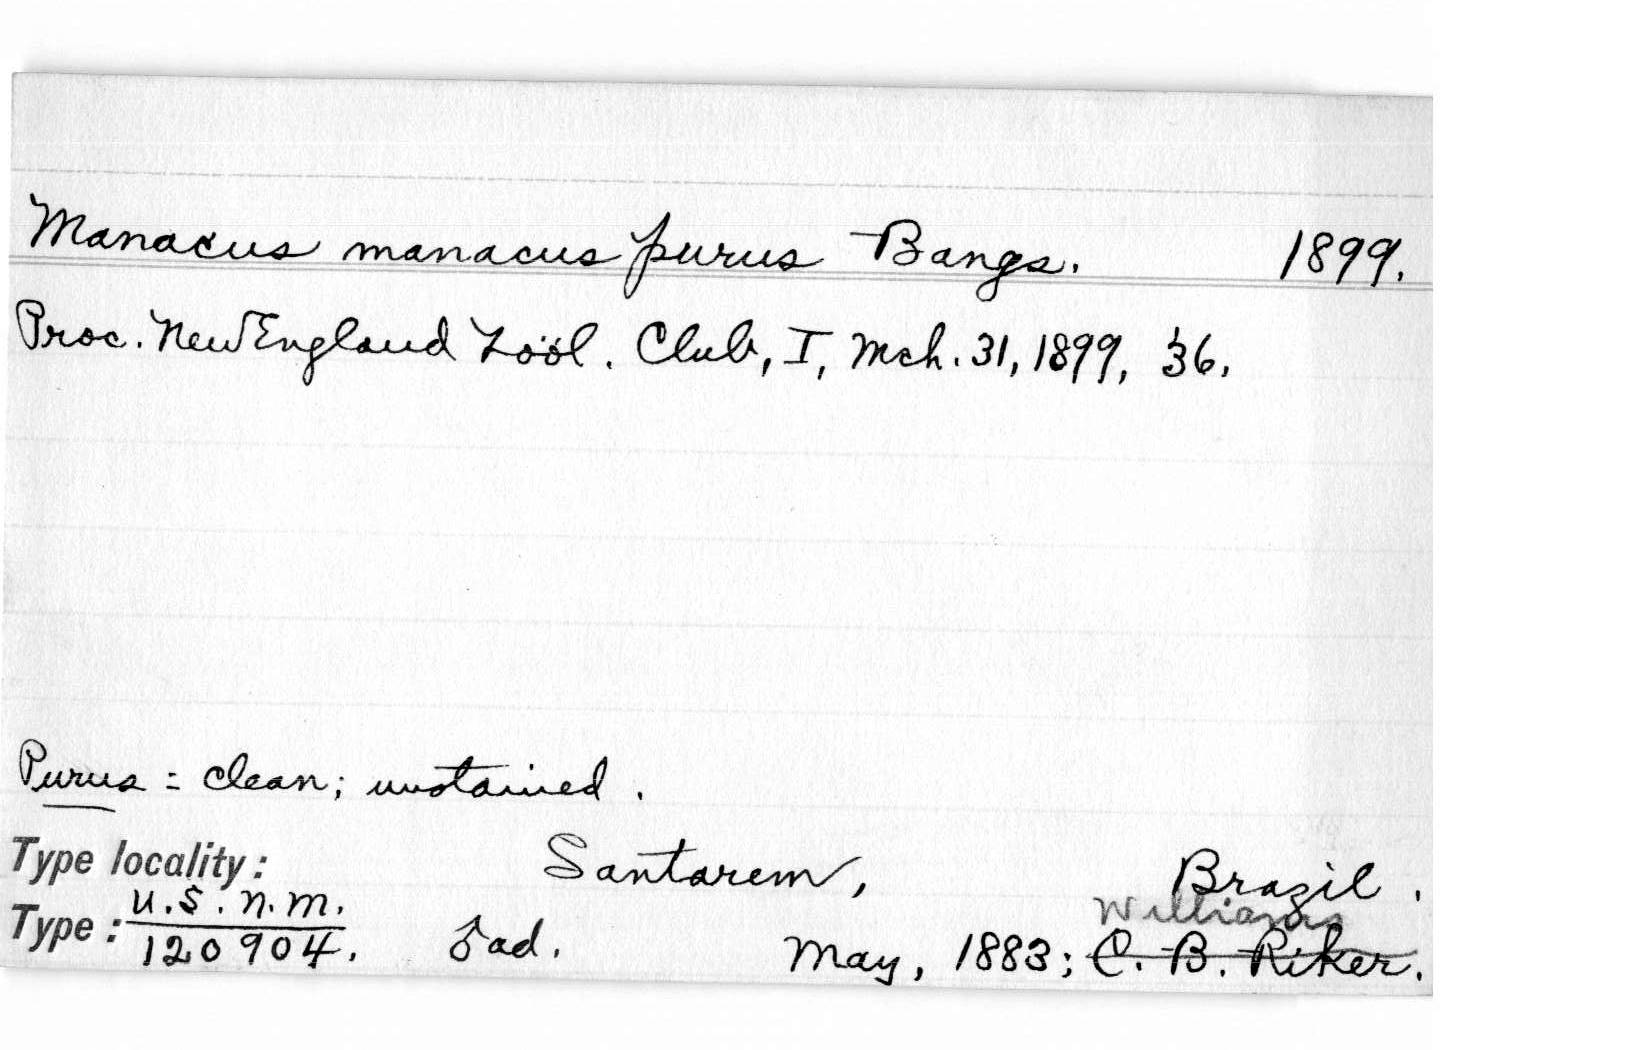 Manacus manacus purus Bangs. 1899.
Proc. New England Zoöl. Club, I, Mch. 31, 1899, 36.
Purus = clean; unstained.
Type locality: Santarem, Brazil.
Williams
Type: U.S.N.M. 120904. ♂ ad. May, 1883; C. B. Riker.